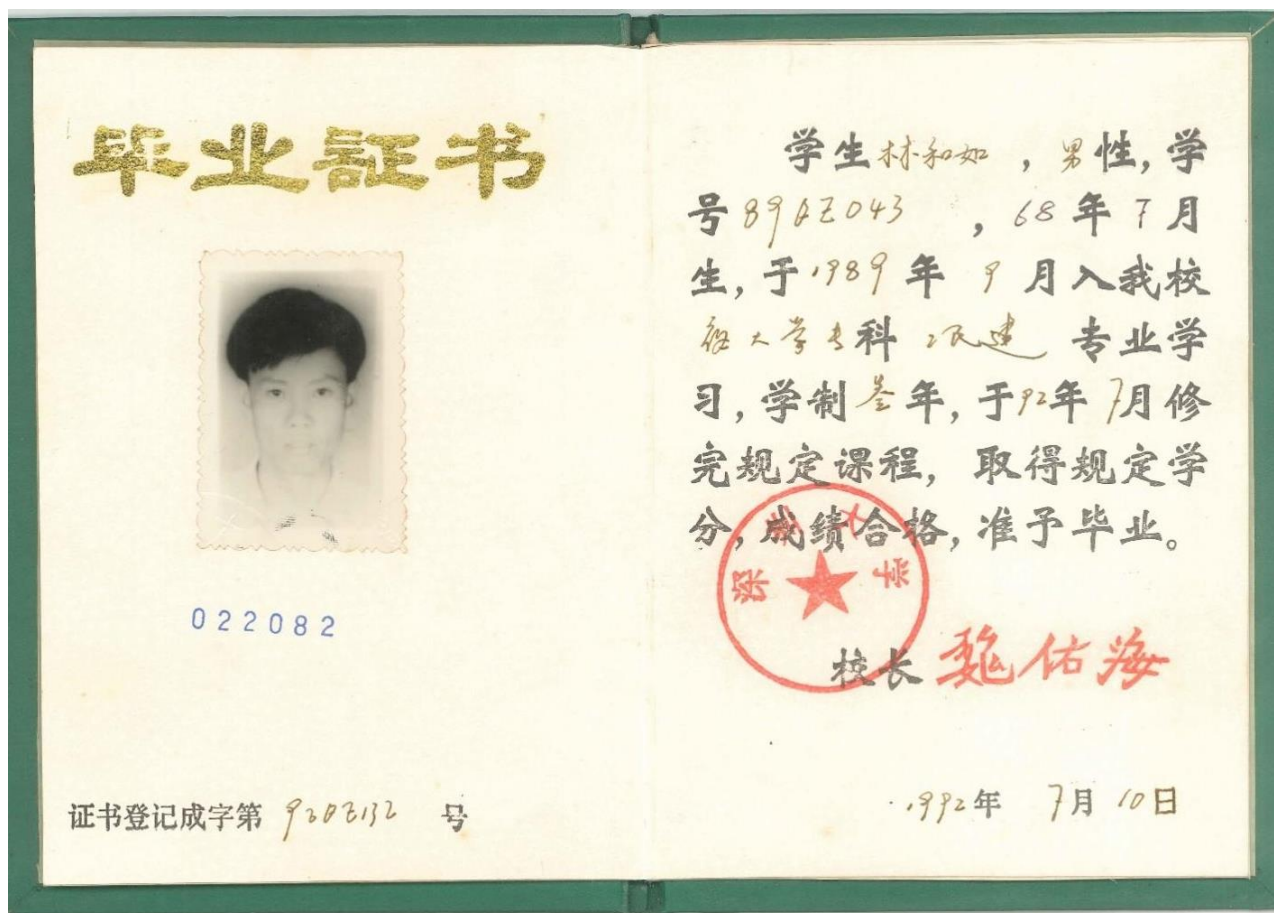 毕业証书
022082
证书登记成字第 920Z132 号
学生林和如，男性，学
号89BZ043，68年7月
生，于1989年9月入我校
夜大学专科 民建 专业学
习，学制叁年，于92年7月修
完规定课程，取得规定学
分，成绩合格，准予毕业。
深圳大学
校长 魏佑海
1992年7月10日